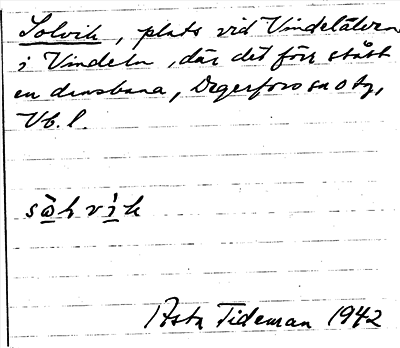 Solvik, plats vid Vindelälven
i Vindeln, där det förr stått
en dansbana, Degerfors sn o tg,
Vb. l.
Asta Tideman 1942